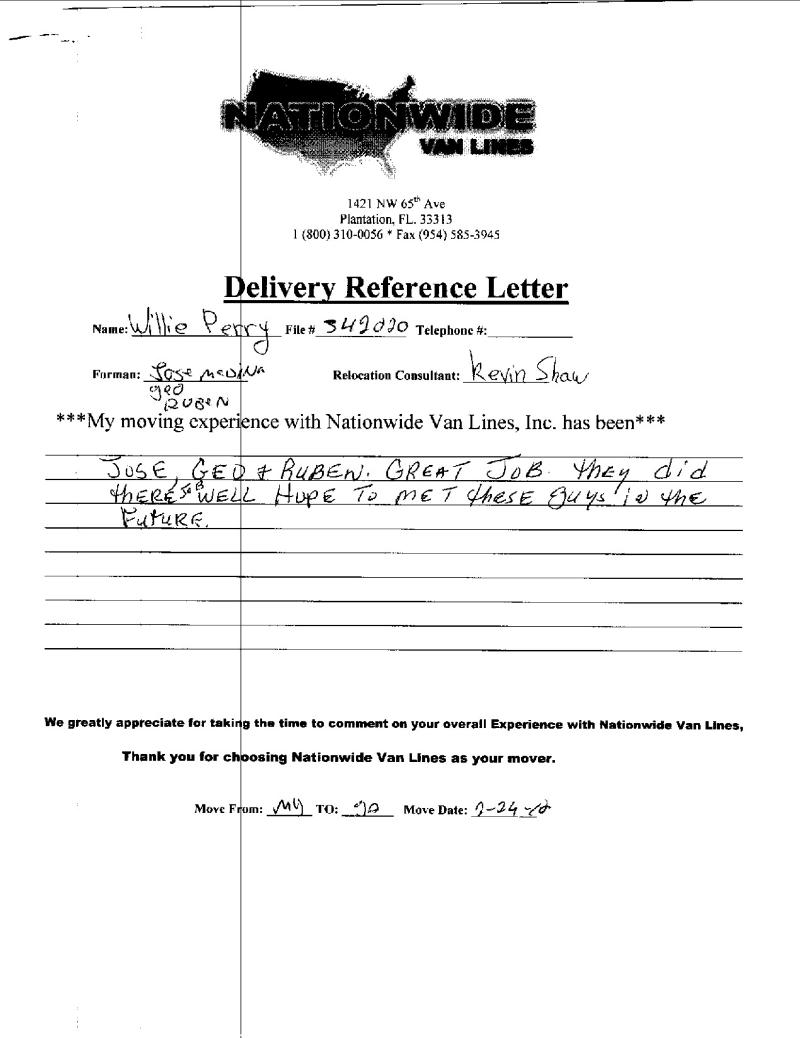 NATIONWIDE
VAN LINES
1421 NW 65th Ave
Plantation, FL. 33313
1 (800) 310-0056 * Fax (954) 585-3945
Delivery Reference Letter
Name: Willie Perry File # 349020 Telephone #:
Forman: Jose MEDINA Relocation Consultant: Kevin Shaw
geo
RUBEN
***My moving experience with Nationwide Van Lines, Inc. has been***
JOSE, GEO & RUBEN. GREAT JOB. they did
thERE JOB WELL HOPE TO MET thESE guys in the
FutuRE.
We greatly appreciate for taking the time to comment on your overall Experience with Nationwide Van Lines,
Thank you for choosing Nationwide Van Lines as your mover.
Move From: TO: Move Date: